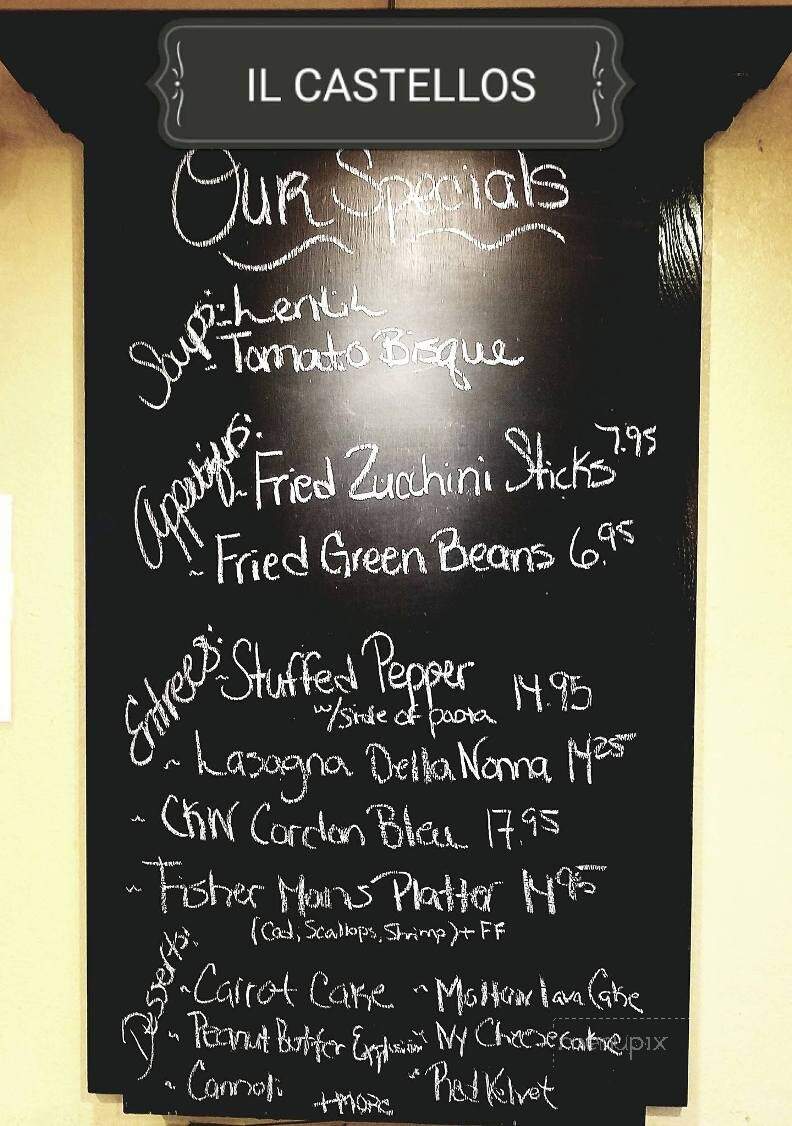 IL CASTELLOS
Our Specials
Soups: ~ Lentil
~ Tomato Bisque
Appetizers: ~ Fried Zucchini Sticks 7.95
~ Fried Green Beans 6.95
Entrees: ~ Stuffed Pepper 14.95
w/side of pasta
~ Lasagna Della Nonna
~ CKN Cordon Bleu 17.95
~ Fisher Mans Platter 14.95
(Cod, Scallops, Shrimp) + FF
Desserts: ~ Carrot Cake ~ Moltan lava Cake
~ Peanut Butter Explosion ~ NY Cheesecake
menupix
~ Cannoli ~ Red Velvet
+MORE